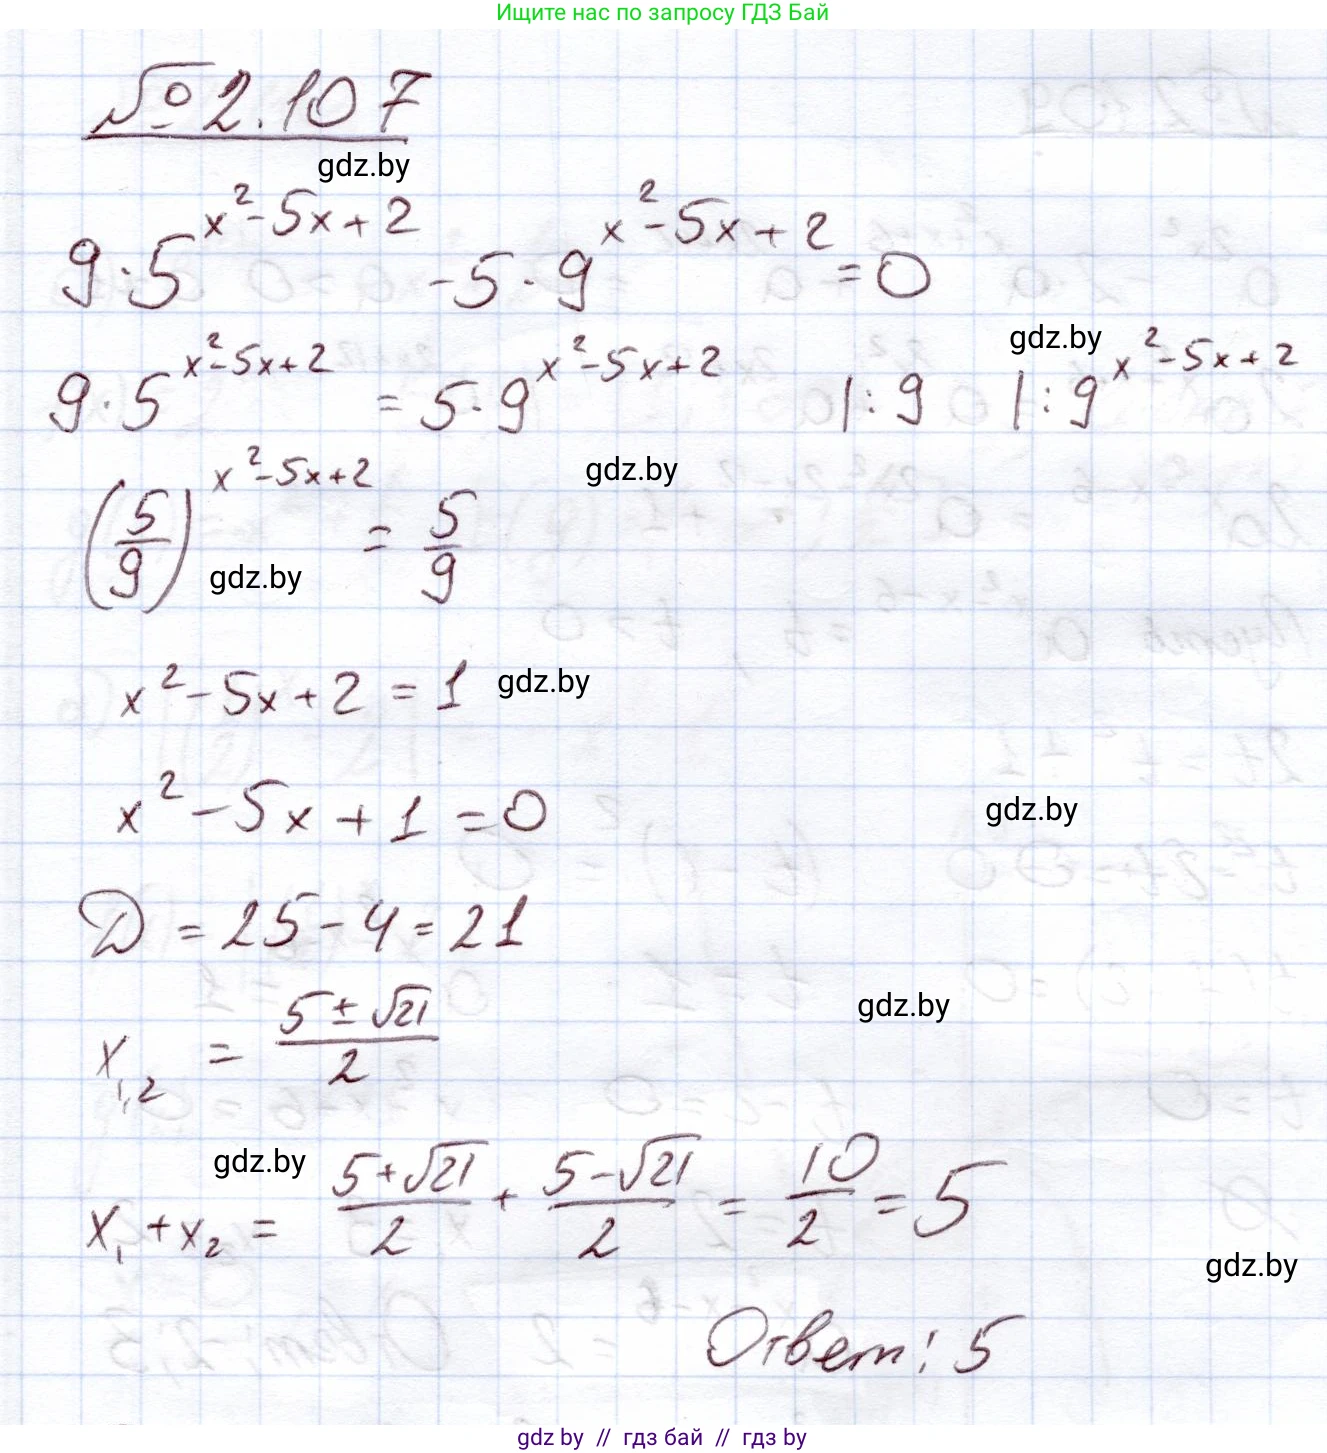 Ищите нас по запросу ГДЗ Бай
№ 2.107
gdz.by
9·5^(x²-5x+2) - 5·9^(x²-5x+2) = 0
gdz.by
9·5^(x²-5x+2) = 5·9^(x²-5x+2) |:9 |:9^(x²-5x+2)
gdz.by
(5/9)^(x²-5x+2) = 5/9
gdz.by
x²-5x+2 = 1 gdz.by
x²-5x+1 = 0
gdz.by
D = 25-4 = 21
gdz.by
x₁,₂ = (5±√21)/2
gdz.by
x₁+x₂ = (5+√21)/2 + (5-√21)/2 = 10/2 = 5
gdz.by
Ответ: 5
gdz by // гдз бай // гдз by